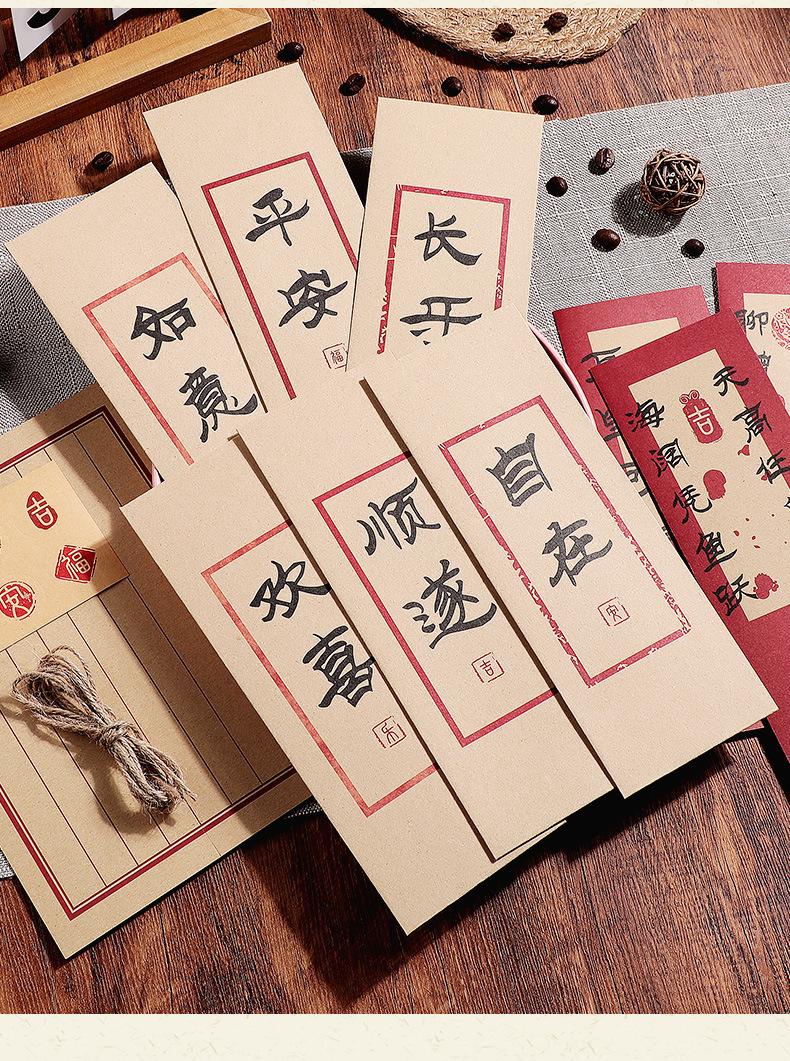 如意
平安
福
长
自在
安
顺遂
吉
欢喜
乐
吉
福
安
天高任
海阔凭鱼跃
吉
聊